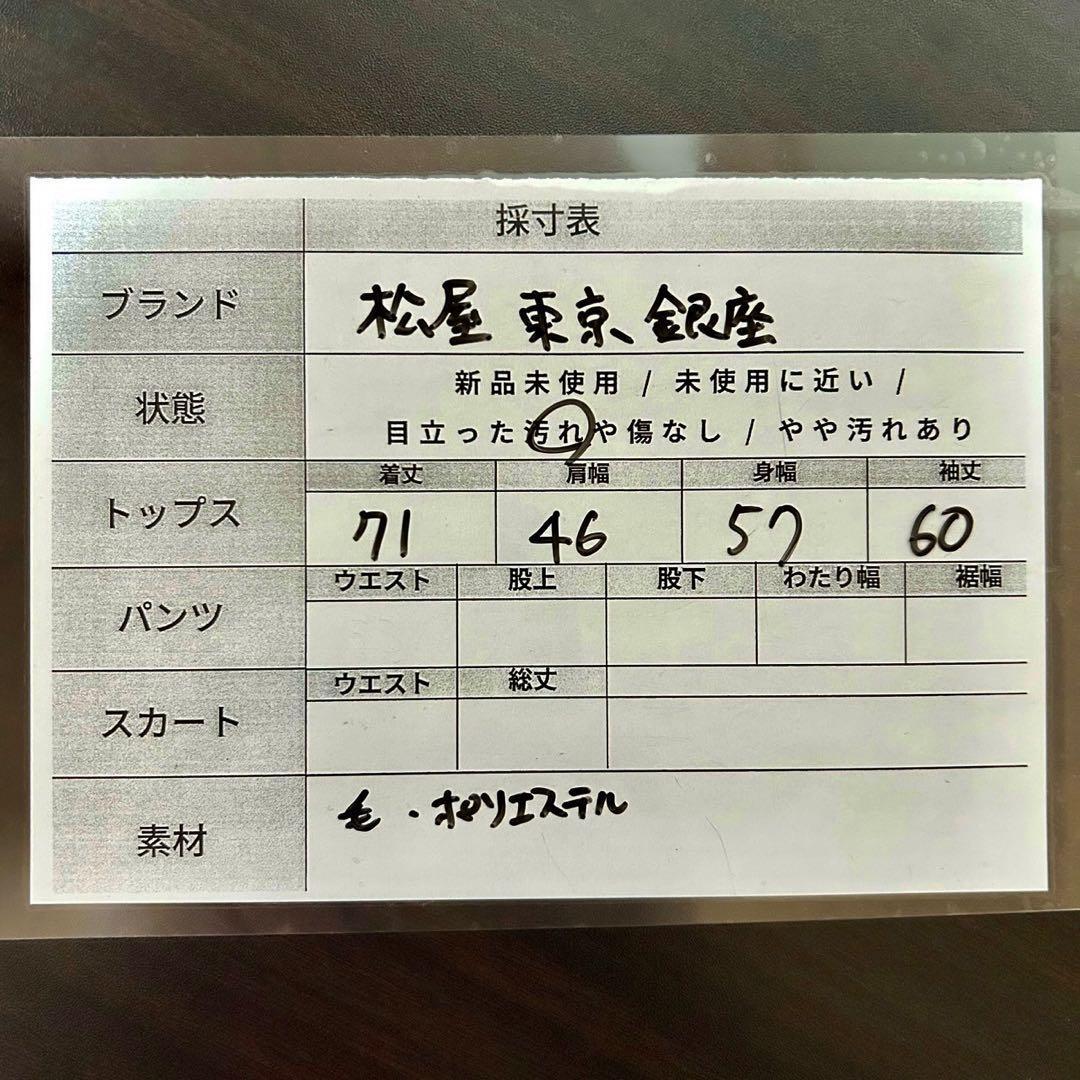 採寸表
ブランド 松屋 東京 銀座
状態 新品未使用 / 未使用に近い /
目立った汚れや傷なし / やや汚れあり
トップス 着丈 肩幅 身幅 袖丈
71 46 57 60
パンツ ウエスト 股上 股下 わたり幅 裾幅
スカート ウエスト 総丈
素材 毛・ポリエステル